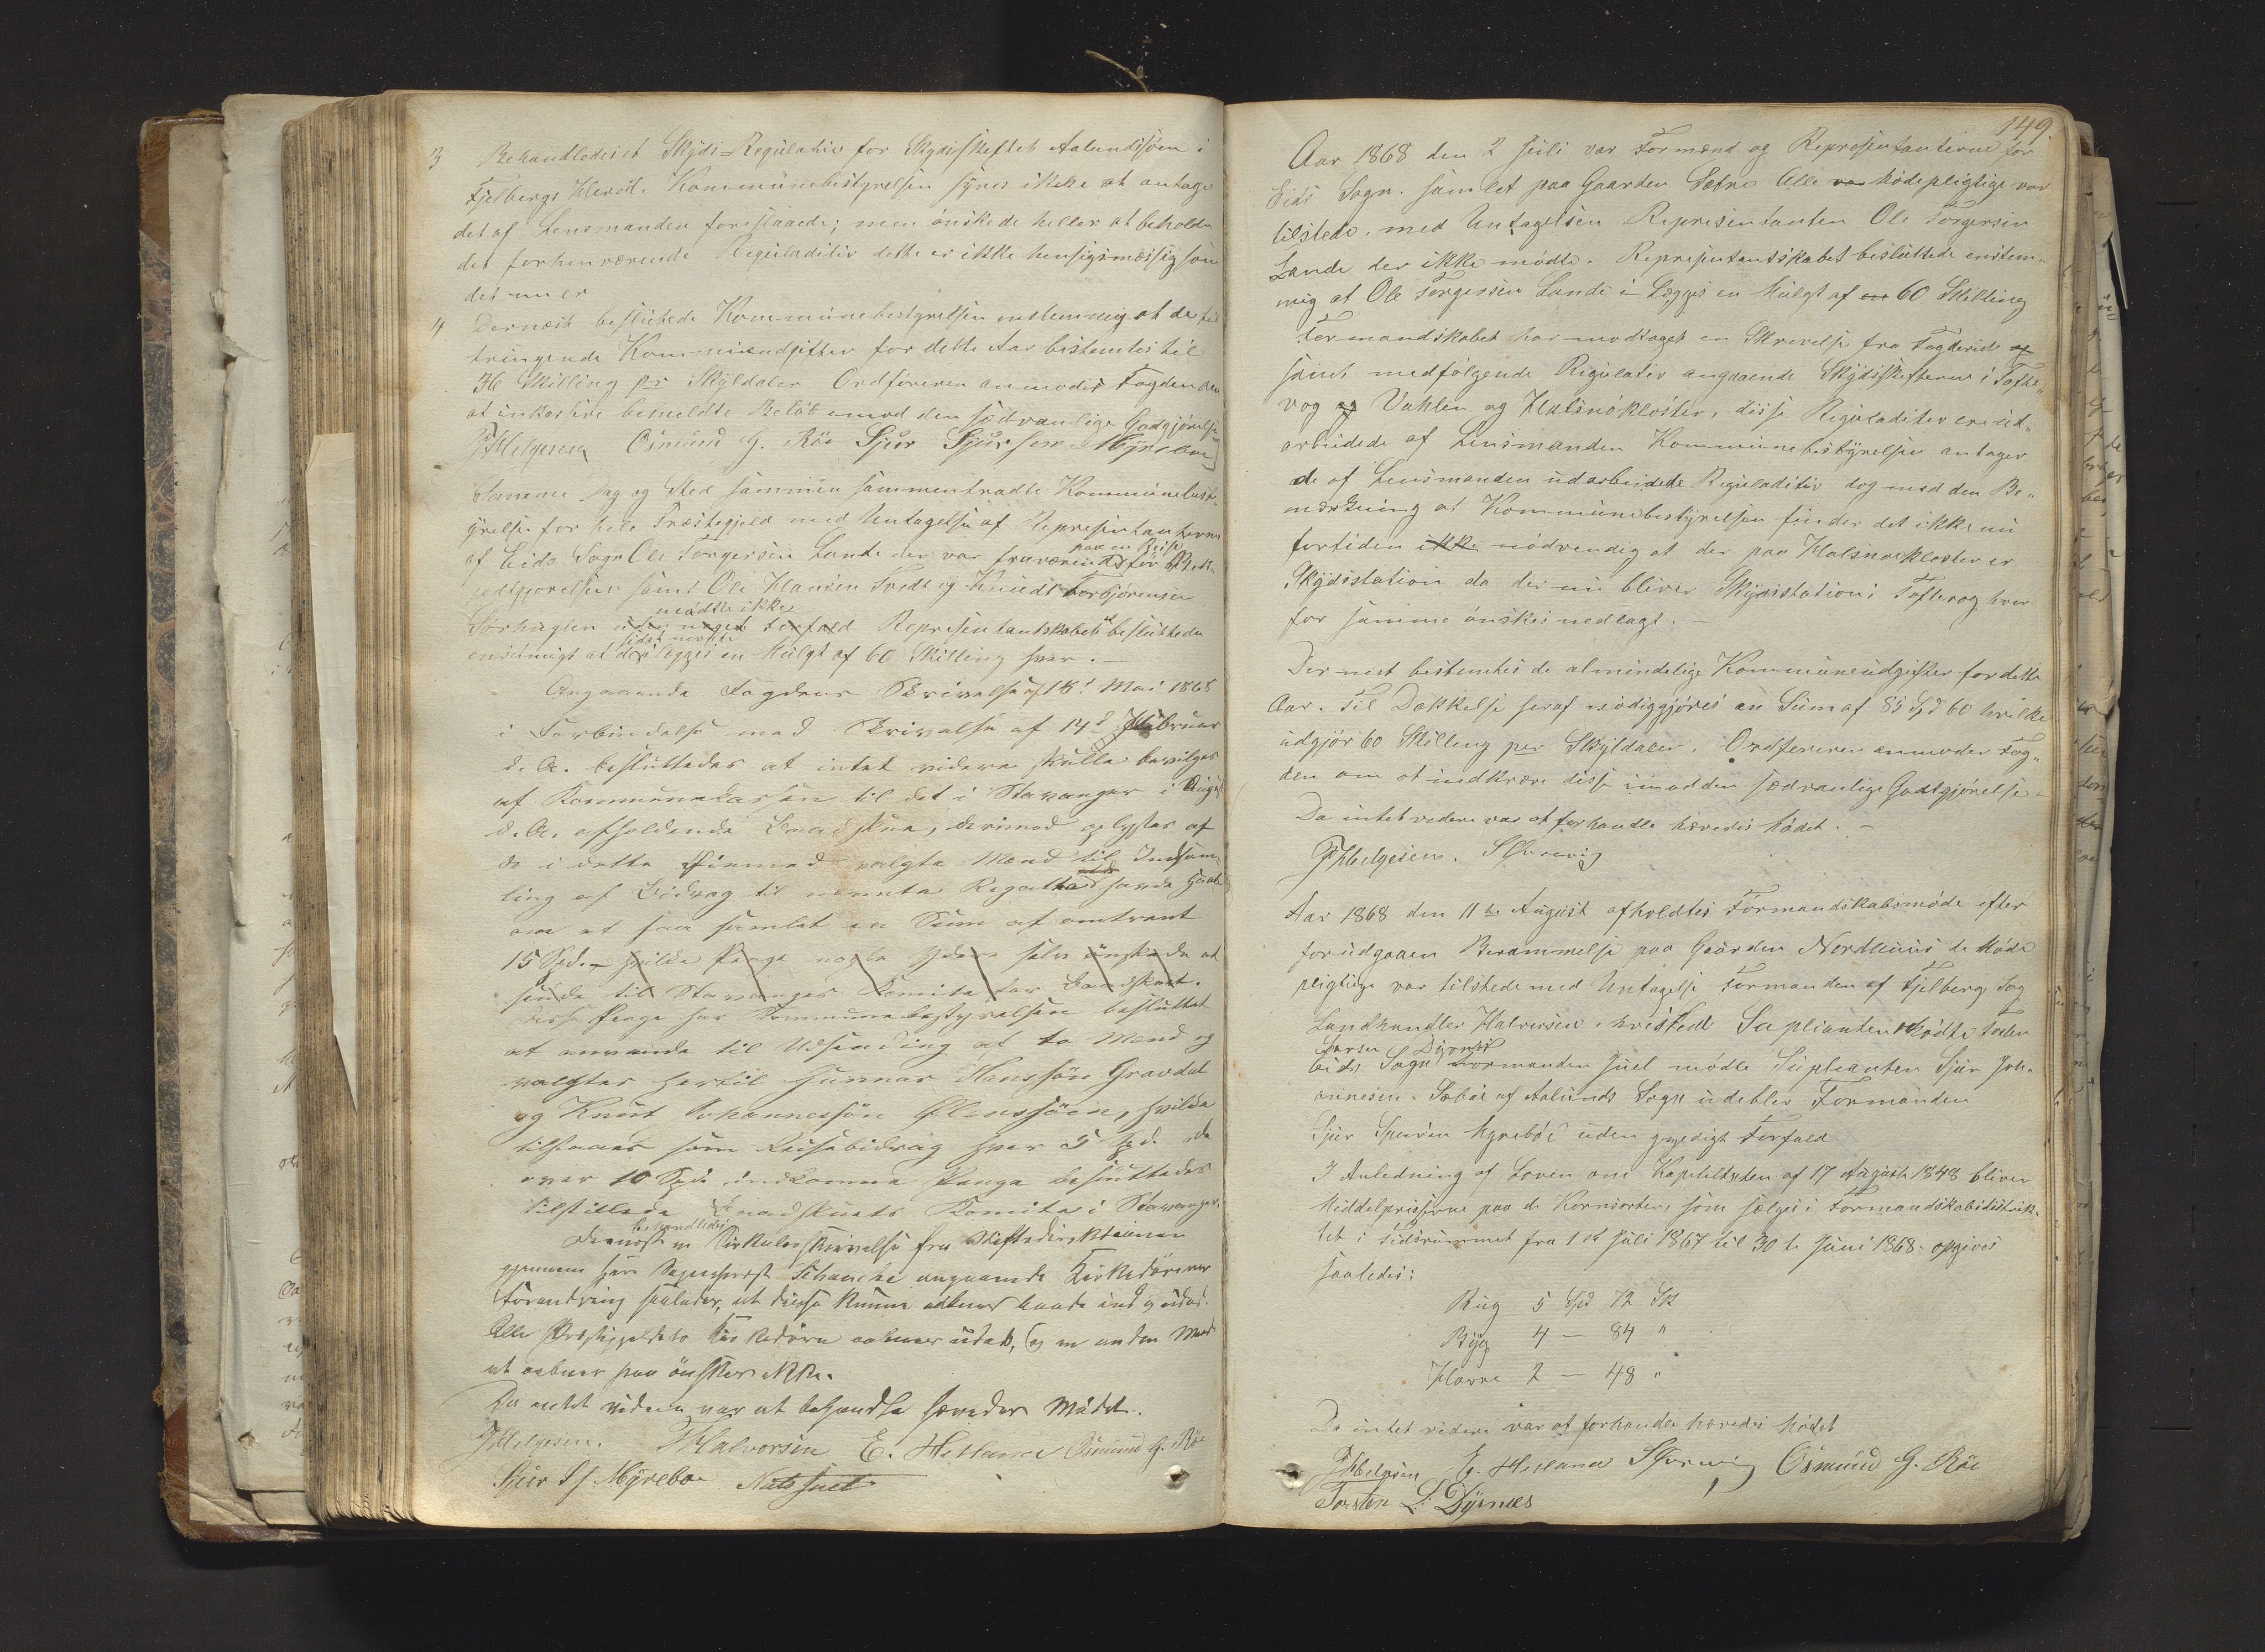 3 Behandledes et Skyds-Regulativ for Skydsskiftet Aalundsjøen i
Fjelbergs Herød. Kommunebestyrelsen synes ikke at antage
det af Lensmanden foreslaaede; men ønskede heller at beholde
det forhenværende Reguladitiv dette er ikke hensigsmæssig som
det nu er
4 Dernæst besluttede Kommunebestyrelsen enstemmig at de til
trængende Kommuneudgifter for dette Aar bestemtes til
36 Skilling pr Skyldaler Ordføreren anmodes Fogden om
at inkassere bemeldte Beløb imod den sædvanlige Godgjørelse
JHelgesen Osmund G. Röe Sjur Sjursen Myrebøe
Samme Dag og Sted sammen sammentraadte Kommunebest-
yrelse for hele Præstegjeld med Untagelse af Representanterne
af Eids Sogn Ole Torgersen Lande der var fraværende paa en Reise for Bek-
jedtgjørelsen samt Ole Hansen Tvedt og Knudt Torbjørensen
Sørhuglen uden noget Forfald mødte ikke Representantskabet besluttede
enstemigt at de sidst nevnte ilegges en Mulgt af 60 Skilling hver.
Angaaende Fogdens Skrivelse af 18d Mai 1868
i Forbindelse med Skrivelse af 14d Februar
d. A. besluttedes at intet videre skulle bevilges
af Kommunekassen til det i Stavanger i August
d. A. afholdende Landskue, derimod oplystes af
de i dette Øiemed valgte Mænd til Indsam-
ling af Bidrag til nevnte Regatta at de havde Haab
om at faa samlet en Sum af omtrent
15 Spd. hvilke Penge nogle Ydere selv ønskede at
sende til Stavanger Komite for Landskuet.
disse Penge har Kommunebestyrelsen besluttet
at anvende til Udsending af to Mænd og
valgtes hertil Gunnar Hanssön Gravdal
og Knut Johannessön Ølenssöen, hvilke
tilstaaes som Reisebidrag hver 5 Spd. de
over 10 Spd. indkomne Penge besluttedes
tilstillede Landskuets Komite i Stavanger.
Dernæst behandledes en Sirkulærskrivelse fra Stiftsdirektionen
gjennem Herr Sogneprest Schancke angaaende Kirkedørenes
Forandring saaledes, at disse kunne aabnes baade ind og udad.
Alle Præstegjeldets Kirkedøre aabnes udad, og en anden Maade
at aabnes paa ønskes ikke.
Da intet videre var at behandle hævedes Mødet.
JHelgesen. THalvorsen E. Hetland Osmund G. Röe
Sjur Sj Myrebø Nils Juel
149.
Aar 1868 den 2 Juli var Formænd og Representanterne for
Eids Sogn. samlet paa Gaarden Sæbrø Alle var Mødepligtige var
tilstede, med Untagelsen Representanten Ole Torgersen
Lande der ikke mødte. Representantskabet besluttede enstem-
mig at Ole Torgersen Lande i Lægges en Mulgt af en 60 Skilling
Formandskabet har modtaget en Skrevelse fra Fogderiet og
samt medfølgende Regulativ angaaende Skydsskifterne i Tofte-
vog og Vahlen og Halsnökloster, disse Reguladitiv ere ud-
arbeidede af Lensmanden Kommunebestyrelsen antager
de af Lensmanden udarbeidede Reguladitiv dog med den Be-
mærkning at Kommunebestyrelsen finder det ikke nu
fortiden ikke nødvendig at der paa Halsnoekloster er
Skydsstation da der nu bliver Skysstation i Toftevog hvor
for samme ønskes nedlagt. —
Der nest bestemtes de almindelige Kommuneudgifter for dette
Aar. Til Dækkelse heraf nödiggjøres en Sum af 85 Spd 60 hvilke
udgjør 60 Skilling per Skyldaler. Ordføreren anmoder Fog-
den om at indkræve disse imod den sædvanlige Godtgjørelse —
Da intet videre var at forhandle hævedes Mødet. —
JHelgesen. SOrrevig
Aar 1868 den 11te August afholdtes Formandskabsmøde efter
forudgaaen Berammelse paa Gaarden Nerdhuus de Møde
pligtige var tilstede med Untagelse Formanden af Fjelberg Sog
Landhandler Halvorsen, hvisted Suplianten Mødte Tosten
Larsen Dyrnes
Eids Sogn Formanden Juel mødte Suplianten Sjur Joh-
annesen Sæbøe af Aalunds Sogn udeblev Formanden
Sjur Sjursen Myrebøe uden gyldigt Forfald
I Anledning af Loven om Kapiteltaxten af 17 August 1848 bliver
Middelpriserne paa de Kornsorter, som sælges i Formandskabsdistrik-
tet i Tidsrummet fra 1st Juli 1867 til 30te Juni 1868 opgives
saaledes:
Rug 5 Spd 12 Sk
Byg 4 — 84 "
Havre 2 — 48 "
Da intet videre var at forhandle hævedes Mødet
JHelgesen E. Hetland SOrrevig Osmund G. Röe
Torsten L. Dyrnes